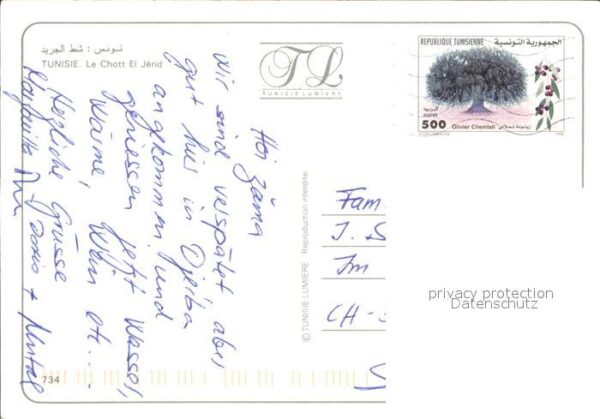 تونس : شط الجريد
TUNISIE. Le Chott El Jérid
TL
TUNISIE LUMIERE
REPUBLIQUE TUNISIENNE الجمهورية التونسية
500
Olivier Chemlali زيتونة شملالي
Hoi zäma
Wir sind verspätet, aber
gut hier in Djerba
angekommen und
geniessen jetzt Wasser,
Wärme, Wein etc...
Herzliche Grüsse
Margarita
© TUNISIE LUMIERE Reproduction interdite
Fam
J.
Im
CH-
734
privacy protection
Datenschutz